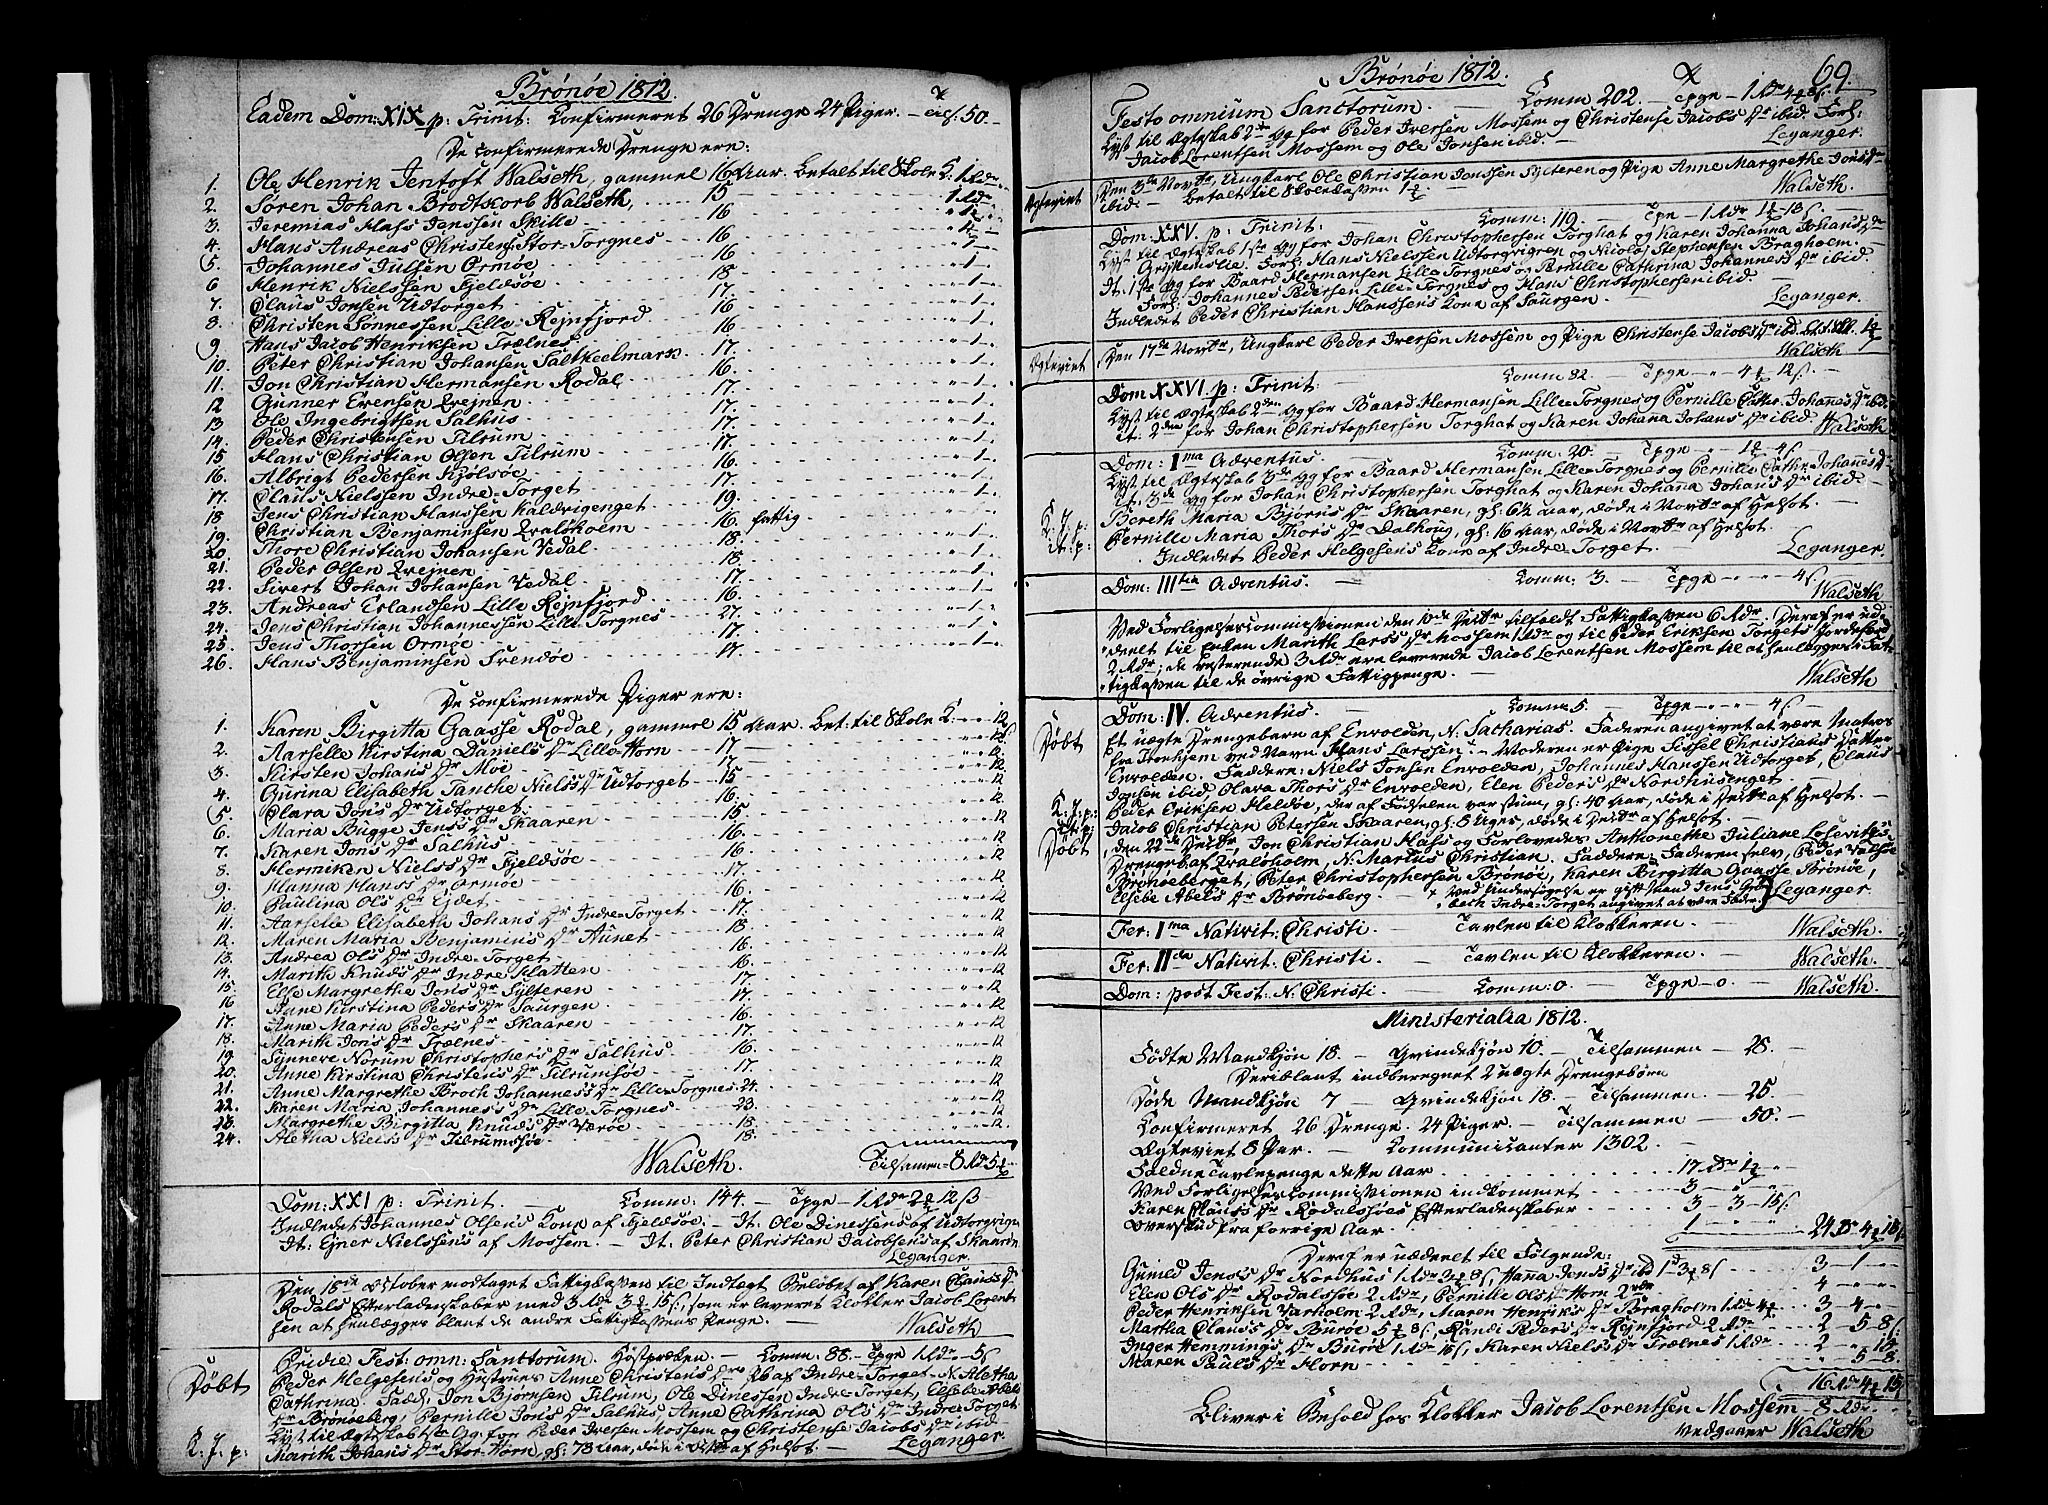 Brönöe 1812.
Eadem Dom: XIX p: Trinit: Confirmeret 26 Drenge 24 Piger. - Tils: 50.
De Confirmerede Drenge ere:
1. Ole Henrik Jentoft Walseth, gammel 16 Aar. betalt til Skole K: 1 Rdr
2. Sören Johan Brodtkorb Walseth, 15 1 Rdr
3. Jeremias Hass Jenssen Skille 16
4. Hans Andreas Christens: Stor-Torgnes 16 1
5. Johannes Julsen Ormöe 16 1
6 Henrik Nielssen Fjeldsöe 18 1
7. Claus Jonsen Udtorget 17. 1
8. Christen Sönnessen Lille-Rejnfjord 16 1
9 Hans Jacob Henriksen Trælnes 16. 1
10. Peter Christian Johansen Saltkeelmark 17. 1
11. Jon Christian Hermansen Rodal 16. 1
12 Gunner Evensen Qvejnen 17. 1
13 Ole Ingebrigtsen Salhus 17. 1
14. Peder Christensen Tilrum 17. 1
15 Hans Christian Olsen Tilrum 17. 1
16. Albrigt Pedersen Kjölsöe 16. 1
17. Claus Nielssen Indre-Torget 17. 1
18 Jens Christian Hanssen Kaldvigenget 19. 1
19. Christian Benjaminsen Qvalöholm 16. fattig
20 Thore Christian Johansen Vedal 18. 1
21. Peder Olsen Qvejnen 18. 1
22. Sivert Johan Johansen Vedal 17. 1
23. Andreas Erlandsen Lille Rejnfjord 16. 1
24. Jens Christian Johannessen Lille-Torgnes 27. 1
25. Jens Thorsen Ormöe 17. 1
26. Hans Benjaminsen Trendöe 17.
De Confirmerede Piger ere:
1. Karen Birgitta Gaasse Rodal, gammel 15 Aar. Bet: til Skole K: 12
2. Aarselle Kirstina Daniels Dr Lille-Horn 17 12
3. Kirsten Johans Dr Moe 17 12
4. Gurina Elisabeth Tanche Niels Dr Udtorget 15 12
5. Clara Jons Dr Udtorget 16. 12
6. Maria Bugge Jens Dr Skaaren 15 12
7. Karen Jons Dr Salhus 16. 12
8. Herniken Niels Dr Fjeldsöe 16 12
9. Hanna Hans Dr Ormöe 17. 12
10. Paulina Ols Dr Ejdet 16. 12
11. Aarselle Elisabeth Johans Dr Indre-Torget 17. 12
12. Maren Maria Benjamins Dr Aunet 18 12
13. Andrea Ols Dr Indre-Torget 16. 12
14. Marith Knuds Dr Indre Hatten 16. 12
15. Else Margrethe Jons Dr Sylteren 17 12
16 Anne Kirstina Peders Dr Saurgen 17. 12
17. Anne Maria Peders Dr Skaaren 16 12
18. Marith Jons Dr Trælnes 17. 12
19. Synneve Norum Christophers Dr Salhus 16. 12
20. Anne Kirstina Christens Dr Tilrumsöe 17. 12
21. Anne Margrethe Broch Johanness Dr Lille-Torgnes 24. 12
22. Karen Maria Johanness Dr Lille-Torgnes 23. 12
23. Margrethe Birgitta Knuds Dr Værøe 18. 12
24. Aletha Niels Dr Tilrumssöe 18.
Walseth. Tilsammen 8 Rd 5
Dom: XXI p: Trinit. Comm: 144. - Tpge - 1 Rdr 2 12 ß
Indledet Johannes Olsens Kone af Fjeldsöe. - It: Ole Dinessens af Udtorgvign
It: Ejner Nielssens af Mossem. - It: Peter Christian Jacobsens af Skaaren
Leganger.
Den 18de October modtaget Fattigkassen til Indtægt Belöbet af Karen Clauss Dr
Rodals Efterladenskaber med 3 Rdr 3 15 ß, som er leveret Klokker Jacob Lorent-
sen at henlægges blant de andre Fattigkassens Penge. - Walseth
Pridie Fest: omn: Sanctorum. Höstpræken. - Comm: 88. - Tpge 1 Rdr - 5 ß
Döbt Peder Helgesens og Hustrues Anne Christens Drs af Indre-Torget - N. Aletha
Cathrina. Fadd: Jon Björnsen Tilrum, Ole Dinessen Indre-Torget, Elsebe Abels
Dr Brönöeberg, Pernille Jons Dr Salhus, Anne Cathrina Ols Dr Indre-Torget
Lyst til Ægteskab 1ste Gg: for Peder Iversen Mossem og Christense Jacobs Dr ibid
K. J. p: Marith Johans Dr Stor-Horn, gl: 78 Aar, döde i af Helsot: - Leganger.
Brönöe 1812. 69.
Festo omnium Sanctorum. - Comm 202. - Tpge - 1 Rdr 4 8 ß.
Lyst til Ægteskab 2de Gg for Peder Iversen Mossem og Christense Jacobs Dr ibid. Forl:
Jacob Lorentsen Mossem og Ole Jonsen ibid. - Leganger.
Ægteviet Den 3die Novbr, Ungkarl Ole Christian Jonssen Sylteren og Pige Anne Margrethe Jons Dr
ibid. - betalt til Skolekassen 1 Walseth.
Dom. XXV. p: Trinit: Comm: 119. - Tpge - 1 Rdr 1 13 ß.
Lyst til Ægteskab 1ste Gg for Johan Christophersen Torghat og Karen Johanna Johans Dr
Christenslie. Forl: Hans Nielssen Udtorgvigen og Nicolaj Stephensen Bragholm. -
It. 1ste Gg for Baard Hermansen Lille-Torgnes og Pernille Cathrina Johannes Dr ibid
Forl: Johannes Pedersen Lille-Torgnes og Hans Christophersen ibid.
Indledet Peder Christian Hanssens Kone af Saurgen. - Leganger.
Ægteviet Den 17de Novbr, Ungkarl Peder Iversen Mossem og Pige Christense Jacobs Dr ibid. 1
Walseth
Dom XXVI p: Trinit: Comm 82. - Tpge - 4 12 ß.
Lyst til Ægteskab 2den Gg for Baard Hermansen Lille-Torgnes og Pernille Cathr: Johanes Dr ibid.
it: 2den for Johan Christophersen Torghat og Karen Johana Johans Dr ibid. Walseth
Dom: Ima Adventus. Comm: 20. Tpge - 1 4 ß
Lyst til Ægteskab 3de Gg for Baard Hermansen Lille-Torgnes og Pernille Cathr: Johanes Dr
It. 3de Gg for Johan Christophersen Torghat og Karen Johanna Johans Dr ibid. -
K. J. p: Bereth Maria Björns Dr Skaaren, gl: 6½ Aar, döde i Novbr af Helsot.
it. p: Pernille Maria Thors Dr Dalhoug, gl: 16 Aar, döde i Novbr af Helsot.
Indledet Peder Helgesens Kone af Indre-Torget. - Leganger.
Dom: IIItia Adventus. - Comm: 3. - Tpge - 4 ß
Walseth
Ved Forligelsescommissionen den 10de Decbr tilfaldt Fattigkassen 6 Rdr. Deraf er ud-
deelt til Enken Marith Larss Dr Mossem 1 Rdr og til Peder Eriksen Torgets
2 Rdr; de resterende 3 Rdr ere leverede Jacob Lorentsen Mossem til at henlægges i Fat-
tigkassen til de övrige Fattigpenge. - Walseth
Dom: IV. Adventus. - Comm 5 Tpge - 4 ß
Döbt Et uægte Drengebarn af Envolden, N. Sacharias. Faderen angivet at være Matros
fra Tronhjem ved Navn Hans Larssen. - Moderen er Pige Sissel Christians Datter
Envolden. Faddere: Niels Jonsen Envolden, Johannes Hanssen Udtorget, Claus
Jonsen ibid, Olava Thors Dr Envolden, Elen Peders Dr Nordhusenget -
K. J. p: Peder Eriksen Heldöe, der af Födselen var stum, gl: 40 Aar, döde i Decbr af Helsot. -
it. p: Jacob Christian Petersen Skaaren, gl: 8 Uger, döde i Decbr af Helsot. -
Döbt den 22de Decbr, Jon Christian Hass og Forlovedes Anthonethe Juliane
Drengeb. af Qvalöholm, N: Martus Christian. Faddere: Faderen selv, Peder
Brönöeberget, Peter Christophersen Brönöe, Karen Birgitta Gaasse Brönöe,
Elsebe Abels Dr Brönöeberg. - + Ved Undersögelse er gift Mand Jens Grö-
bech Indre-Torget angivet at være Fader. Leganger.
Fer. Ima Nativit: Christi - Tavlen til Klokkeren. Walseth.
Fer. IIda Nativit. Christi - Tavlen til Klokkeren. - Walseth.
Dom: post Fest: N. Christi. Comm: 0. - Tpge - 0. - Walseth.
Ministerialia 1812.
Födte Mandkjön 18. - Qvindekjön 10. - Tilsammen - 28. -
Deriblant indberegnet 2 uægte Drengebörn
Döde Mandkjön 7 - Qvindekjön 18. - Tilsammen - 25.
Confirmeret 26 Drenge. 24 Piger. - Tilsammen - 50.
Ægteviet 8 Par. - Communicanter 1302.
Faldne Tavlepenge dette Aar 17 Rdr 1
Ved Forligelsescommissionen indkommet 3
Karen Clauss Dr Rodalsöes Efterladenskaber 3 - 3 - 15 ß.
Overskud fra forrige Aar. 1 24 Rdr 4 18 ß
Deraf er uddeelt til Fölgende:
Gunild Jens Dr Nordhus 1 Rdr 3 8 ß, Hanna Jens Dr ibid 1 Rd 3 8 ß 3 - 1
Elen Ols Dr Rodalssöe 2 Rdr, Pernille Ols Dr Horn 2 Rdr 4
Peder Henriksen Varholm 2 Rdr, Maren Henriks Dr Bragholm 1 Rdr 4 3 - 4
Martha Clauss Dr Buröe 5 8 ß, Randi Peders Dr Rejnfjord 2 Rdr 2 - 5 - 8 ß
Inger Hemmings Dr Buröe 1 Rdr 18 ß, Karen Niels Dr Trælnes 1 Rdr 2 - 18
Maren Pauls Dr Horn 5 - 8
16 Rdr 4 15
Bliver i Behold hos Klokker Jacob Lorentsen Mossem - 8 Rdr
Vedgaaer Walseth